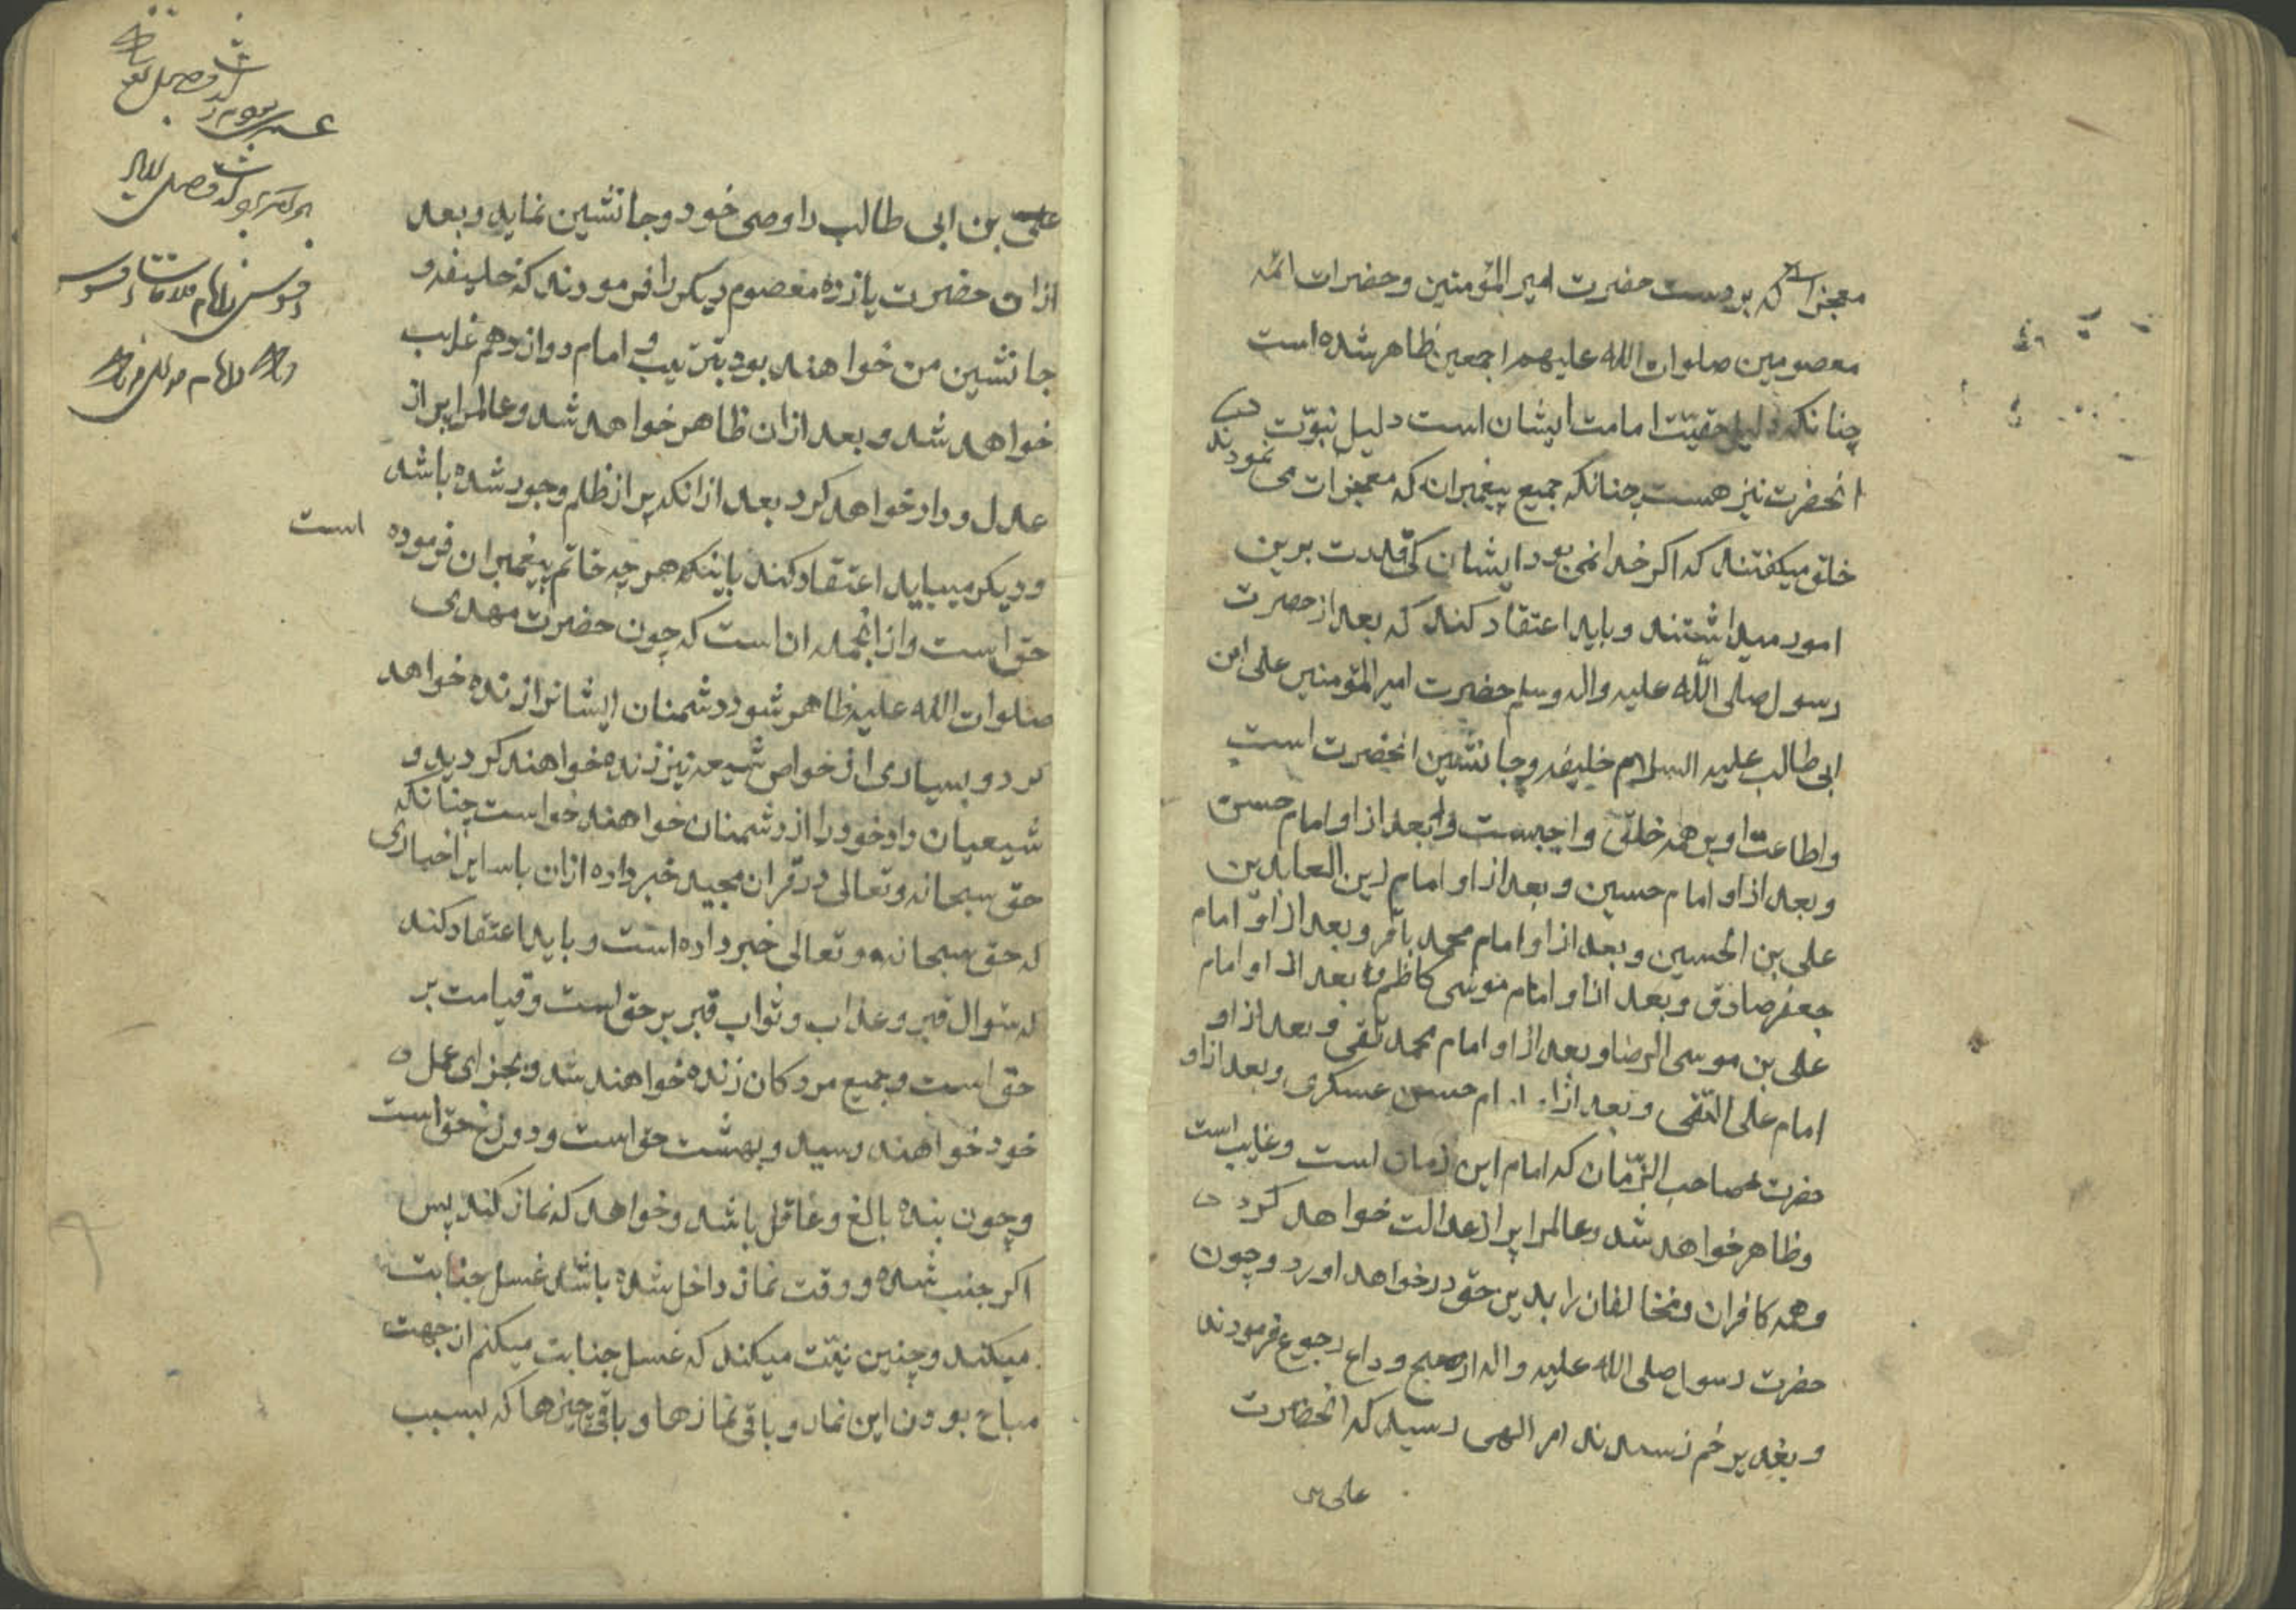 معجزاتی که بر دست حضرت امیر المؤمنین و حضرات ائمه
معصومین صلوات الله علیهم اجمعین ظاهر شده است
چنانکه دلیل حقیّت امامت ایشان است دلیل نبوّت
انحضرت نیز هست چنانکه جمیع پیغمبران که معجزات می نمودند
خلق میکفتند که اکر خدا نمی بود ایشان کی قدرت برین
امور میداشتند و باید اعتقاد کند که بعد از حضرت
رسول صلی الله علیه واله وسلم حضرت امیر المؤمنین علی ابن
ابی طالب علیه السلام خلیفه و جانشین انحضرت است
و اطاعت او بر همه خلق واجبست و بعد از او امام حسن
و بعد از او امام حسین و بعد از او امام زین العابدین
علی بن الحسین و بعد از او امام محمد باقر و بعد از او امام
جعفر صادق و بعد از او امام موسی کاظم و بعد از او امام
علی بن موسی الرضا و بعد از او امام محمد تقی و بعد از او
امام علی النقی و بعد از او امام حسن عسکری و بعد از او
حضرت صاحب الزّمان که امام این زمان است و غایب است
و ظاهر خواهد شد و عالمرا پر از عدالت خواهد کرد
و همه کافران و مخالفان را بدین حق در خواهد اورد و چون
حضرت رسول صلی الله علیه واله از حج وداع رجوع فرمودند
و بغدیر خم رسیدند امر الهی رسید که انحضرت
علی بن
علی بن ابی طالب را وصی خود و جانشین نماید و بعد
ازان حضرت یازده معصوم دیکر را فرمودند که خلیفه و
جانشین من خواهند بود بترتیب و امام دوازدهم غایب
خواهد شد و بعد ازان ظاهر خواهد شد و عالمرا پر از
عدل و داد خواهد کرد بعد ازانکه پر از ظلم و جور شده باشد
و دیکر میباید اعتقاد کند باینکه هر چه خاتم پیغمبران فرموده است
حق است و ازانجمله ان است که چون حضرت مهدی
صلوات الله علیه ظاهر شود دشمنان ایشانرا زنده خواهد
کرد و بسیاری از خواص شیعه نیز زنده خواهند کردید و
شیعیان داد خود را از دشمنان خواهند خواست چنانکه
حق سبحانه و تعالی در قران مجید خبر داده ازان با سایر اخباری
که حق سبحانه و تعالی خبر داده است و باید اعتقاد کند
که سوال قبر و عذاب و ثواب قبر بر حق است و قیامت بر
حق است و جمیع مردکان زنده خواهند شد و بجزای عمل
خود خواهند رسید و بهشت حق است و دوزخ حق است
و چون بنده بالغ و عاقل باشد و خواهد که نماز کند پس
اکر جنب شده و وقت نماز داخل شده باشد غسل جنابت
میکند و چنین نیّت میکند که غسل جنابت میکنم از جهت
مباح بودن این نماز و باقی نمازها و باقی چیزها که بسبب